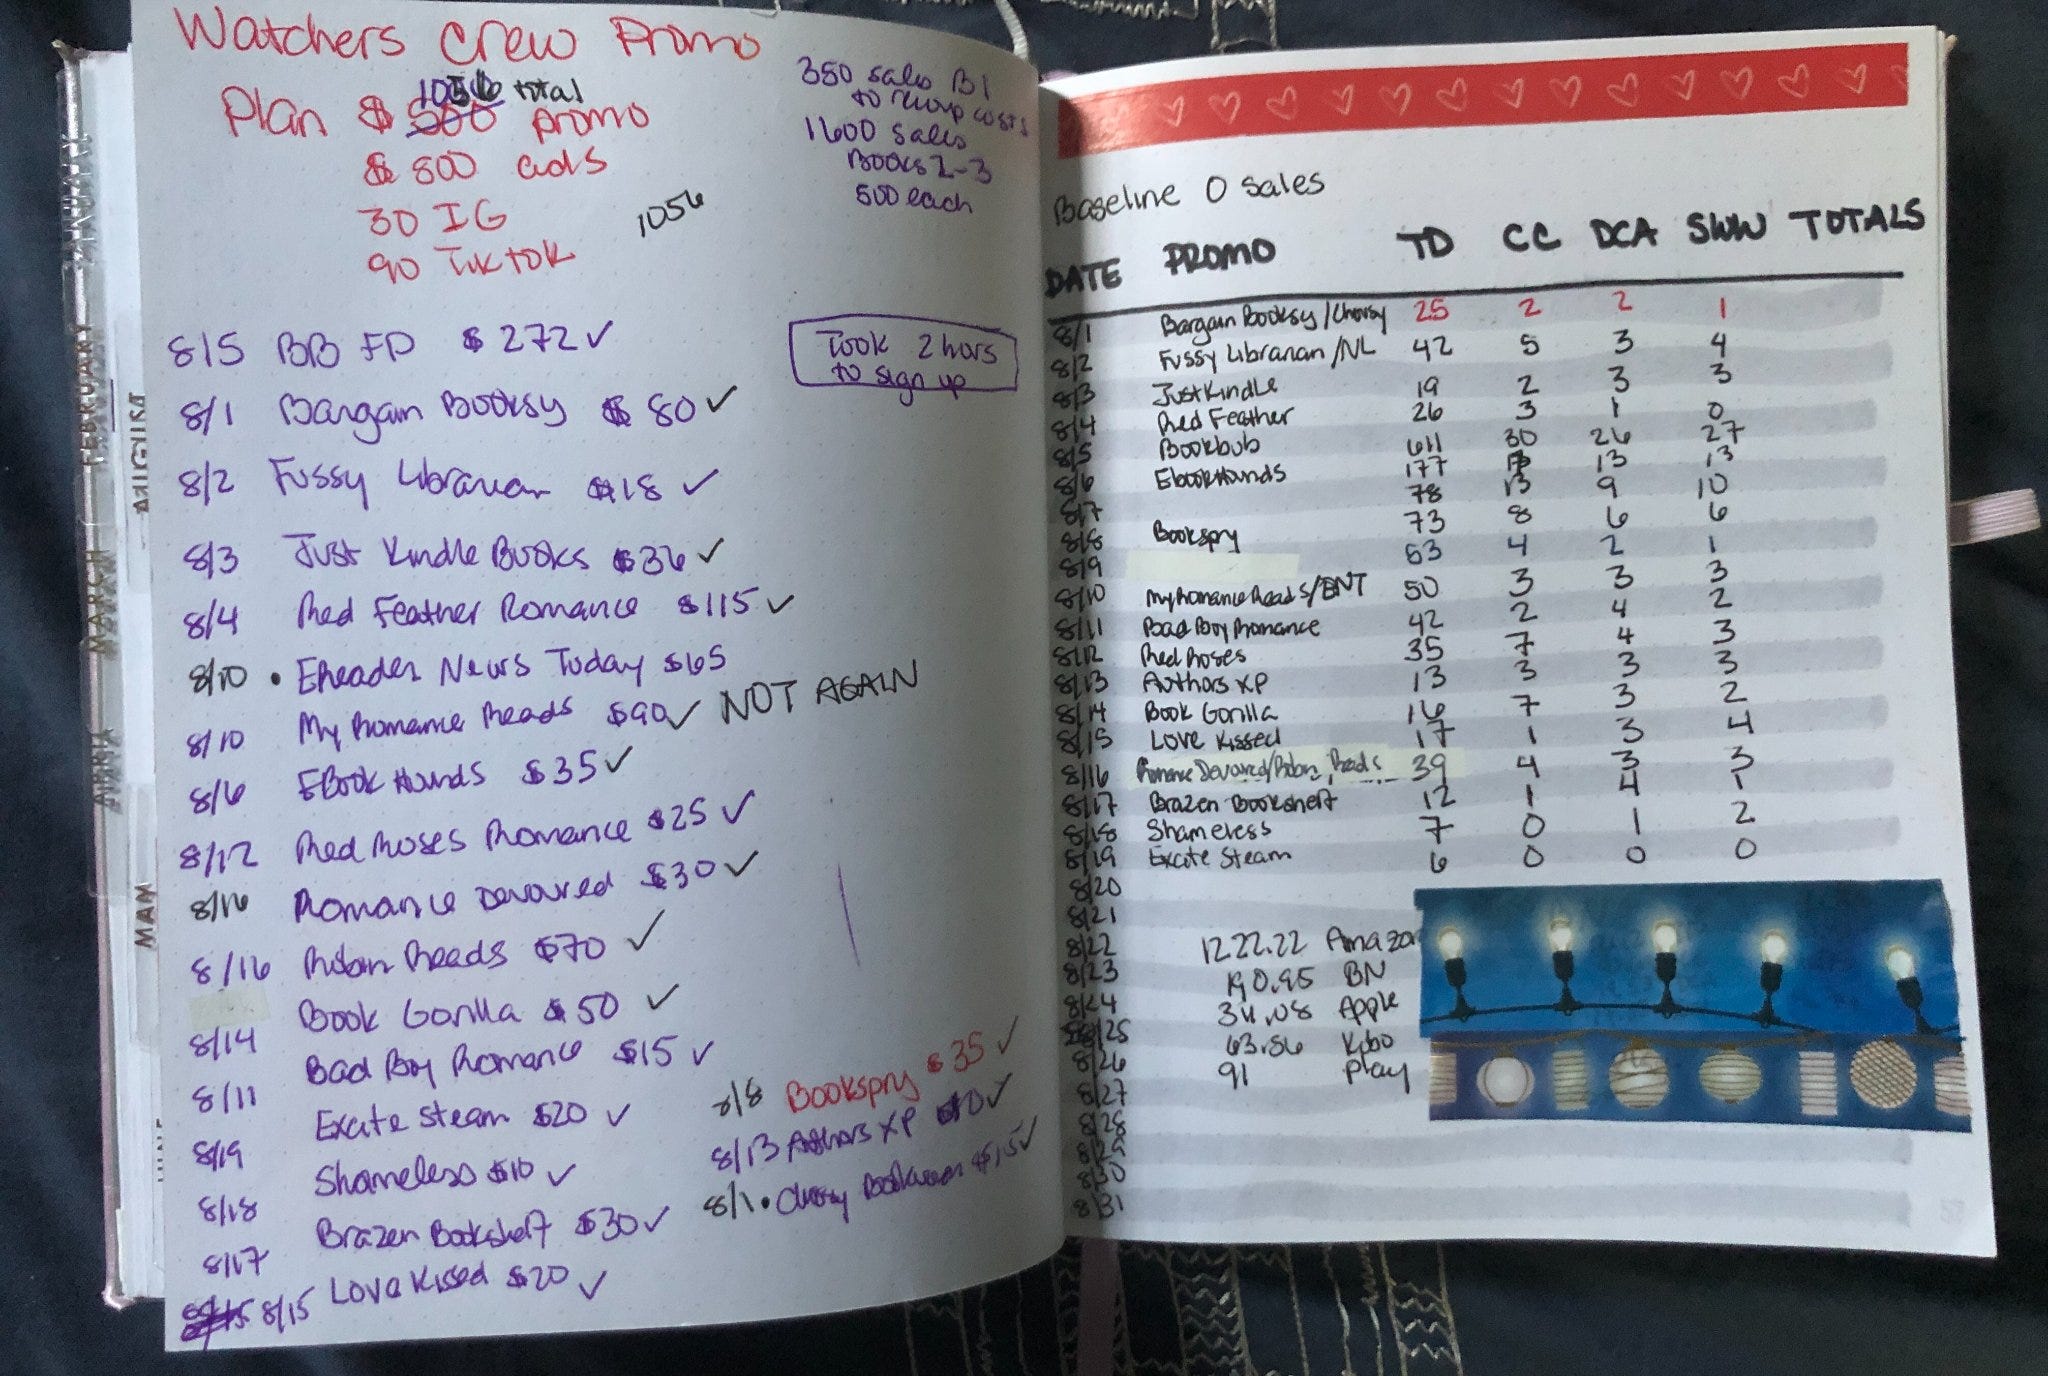 Watchers Crew Promo
total
Plan $ 500 promo
$ 800 ads
30 IG
1056
90 TikTok
350 sales B1
to recoup costs
1600 sales
Books 2-3
500 each
8/5 BB FD $272 ✓
Took 2 hors
to sign up
8/1 Bargain Booksy $80 ✓
8/2 Fussy Librarian $18 ✓
8/3 Just Kindle Books $36 ✓
8/4 Red Feather Romance $115 ✓
8/10 • EReader News Today $65
8/10 My Romance Reads $90 ✓ NOT AGAIN
8/6 EBook Hunds $35 ✓
8/12 Red Roses Romance $25 ✓
8/16 Romance Devoured $30 ✓
8/16 Robin Reads $70 ✓
8/14 Book Gorilla $50 ✓
8/11 Bad Boy Romance $15 ✓
8/19 Excite Steam $20 ✓
8/18 Shameless $10 ✓
8/17 Brazen Bookshelf $30 ✓
8/15 Love Kissed $20 ✓
8/8 Bookspry $35 ✓
8/13 Authors XP ✓
8/1 • Choosy Bookworm $15 ✓
JANUARY
FEBRUARY
MARCH
APRIL
MAY
JUNE
Baseline 0 sales
DATE PROMO TD CC DCA SWW TOTALS
8/1 Bargain Booksy/Choosy 25 2 2 1
8/2 Fussy Librarian/NL 42 5 3 4
8/3 JustKindle 19 2 3 3
8/4 Red Feather 26 3 1 0
8/5 Bookbub 611 30 26 27
8/6 EbookHunds 177 13 13
8/7 78 13 9 10
8/8 Bookspry 73 8 6 6
8/9 53 4 2 1
8/10 MyRomanceReads/ENT 50 3 3 3
8/11 Bad Boy Romance 42 2 4 2
8/12 Red Roses 35 7 4 3
8/13 Authors XP 13 3 3 3
8/14 Book Gorilla 16 7 3 2
8/15 Love Kissed 17 1 3 4
8/16 Romance Devoured/Robin Reads 39 4 3 3
8/17 Brazen Bookshelf 12 1 4 1
8/18 Shameless 7 0 1 2
8/19 Excite Steam 6 0 0 0
8/20
8/21
8/22 1222.22 Amazon
8/23 190.95 BN
8/24 34.08 Apple
8/25 63.86 Kobo
8/26 91 Play
8/27
8/28
8/29
8/30
8/31